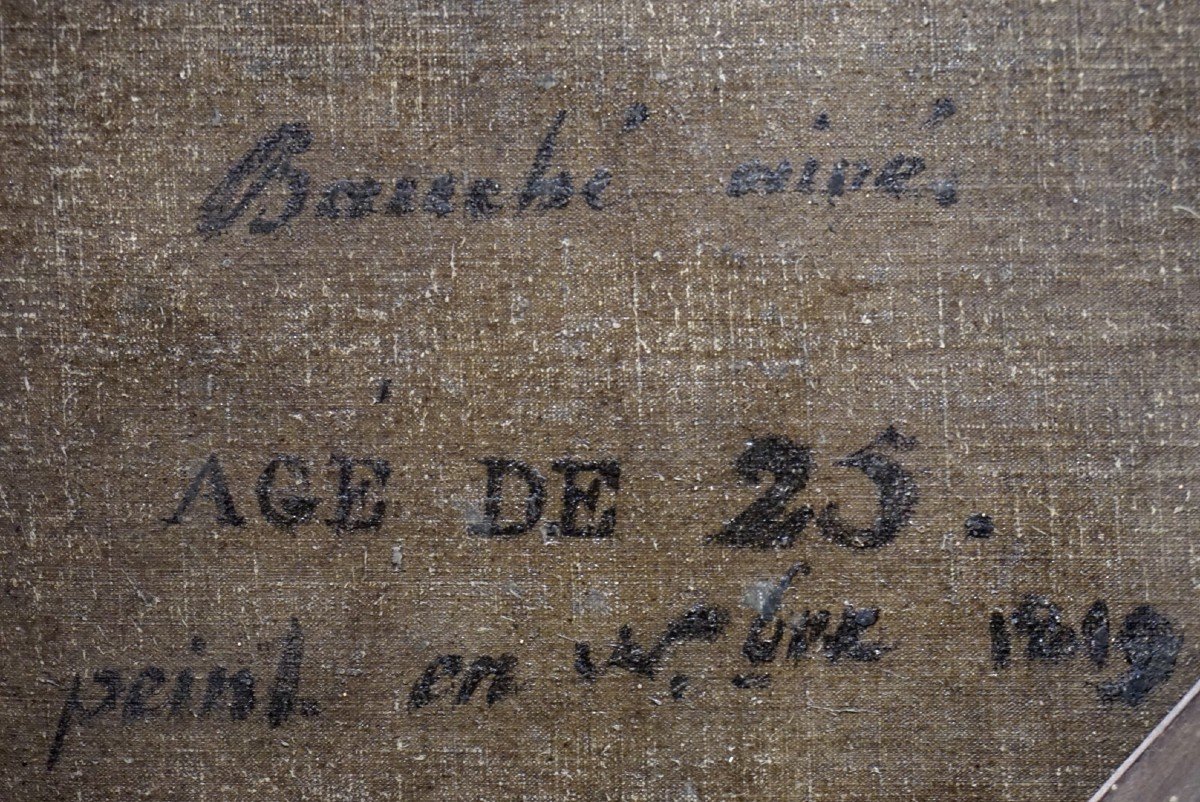 Bauché ainé.
AGÉ DE 25.
peint. en 1819